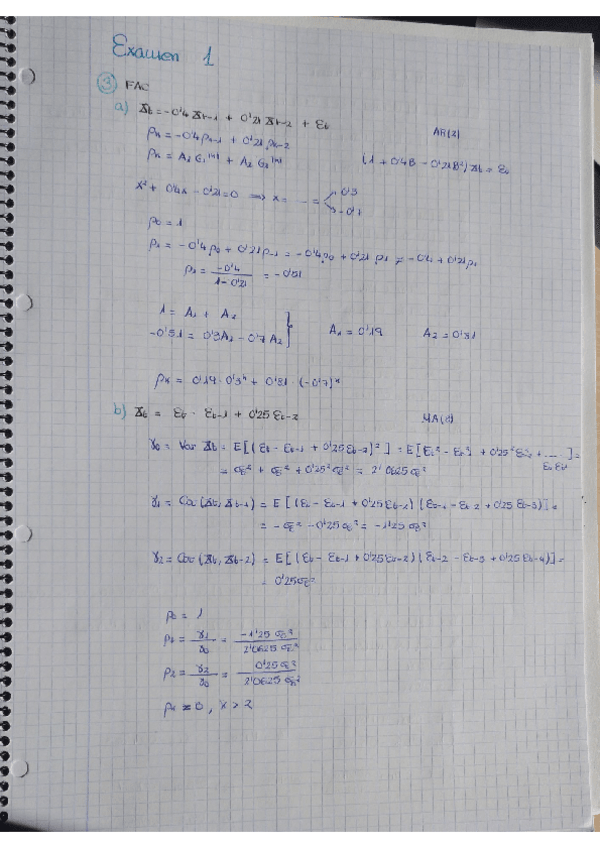 Examen 1
③ FAC
a) Xt = -0'4 Xt-1 + 0'21 Xt-2 + εt
AR(2)
ρk = -0'4 ρk-1 + 0'21 ρk-2
ρk = A1 G1^|k| + A2 G2^|k|
(1 + 0'4B - 0'21B²) Xt = εt
x² + 0'4x - 0'21 = 0 ⟹ x = ... = 0'3
-0'7
ρ0 = 1
ρ1 = -0'4 ρ0 + 0'21 ρ-1 = -0'4 ρ0 + 0'21 ρ1 = -0'4 + 0'21 ρ1
ρ1 = -0'4 / (1 - 0'21) = -0'51
1 = A1 + A2
-0'51 = 0'3A1 - 0'7A2 } A1 = 0'19 A2 = 0'81
ρk = 0'19 · 0'3^k + 0'81 · (-0'7)^k
b) Xt = εt - εt-1 + 0'25 εt-2
MA(2)
γ0 = Var Xt = E[(εt - εt-1 + 0'25 εt-2)²] = E[εt² - εt-1² + 0'25² εt-2² + .... ] =
εt εt-1
= σε² + σε² + 0'25² σε² = 2'0625 σε²
γ1 = Cov(Xt, Xt-1) = E[(εt - εt-1 + 0'25 εt-2)(εt-1 - εt-2 + 0'25 εt-3)] =
= -σε² - 0'25 σε² = -1'25 σε²
γ2 = Cov(Xt, Xt-2) = E[(εt - εt-1 + 0'25 εt-2)(εt-2 - εt-3 + 0'25 εt-4)] =
= 0'25 σε²
ρ0 = 1
ρ1 = γ1/γ0 = -1'25 σε² / 2'0625 σε²
ρ2 = γ2/γ0 = 0'25 σε² / 2'0625 σε²
ρk = 0, k > 2